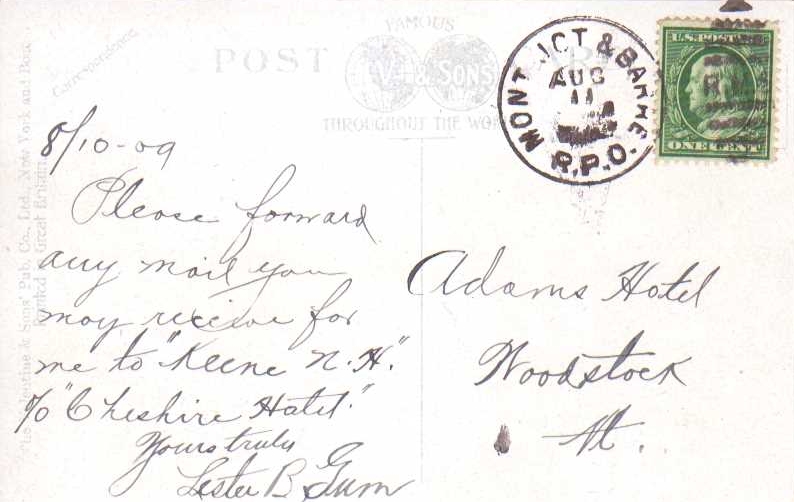 FAMOUS
POST CARD
& SONS
THROUGHOUT THE WORLD
Correspondence.
MONT. JCT & BARRE
AUG
11
R.P.O.
U.S. POST
ONE CENT
8/10-09
Please forward
any mail you
may receive for
me to "Keene N.H."
c/o "Cheshire Hotel."
Yours truly
Lester B Gum
Adams Hotel
Woodstock
Vt.
Valentine & Sons' Pub. Co., Ltd., New York and Boston
Printed in Great Britain